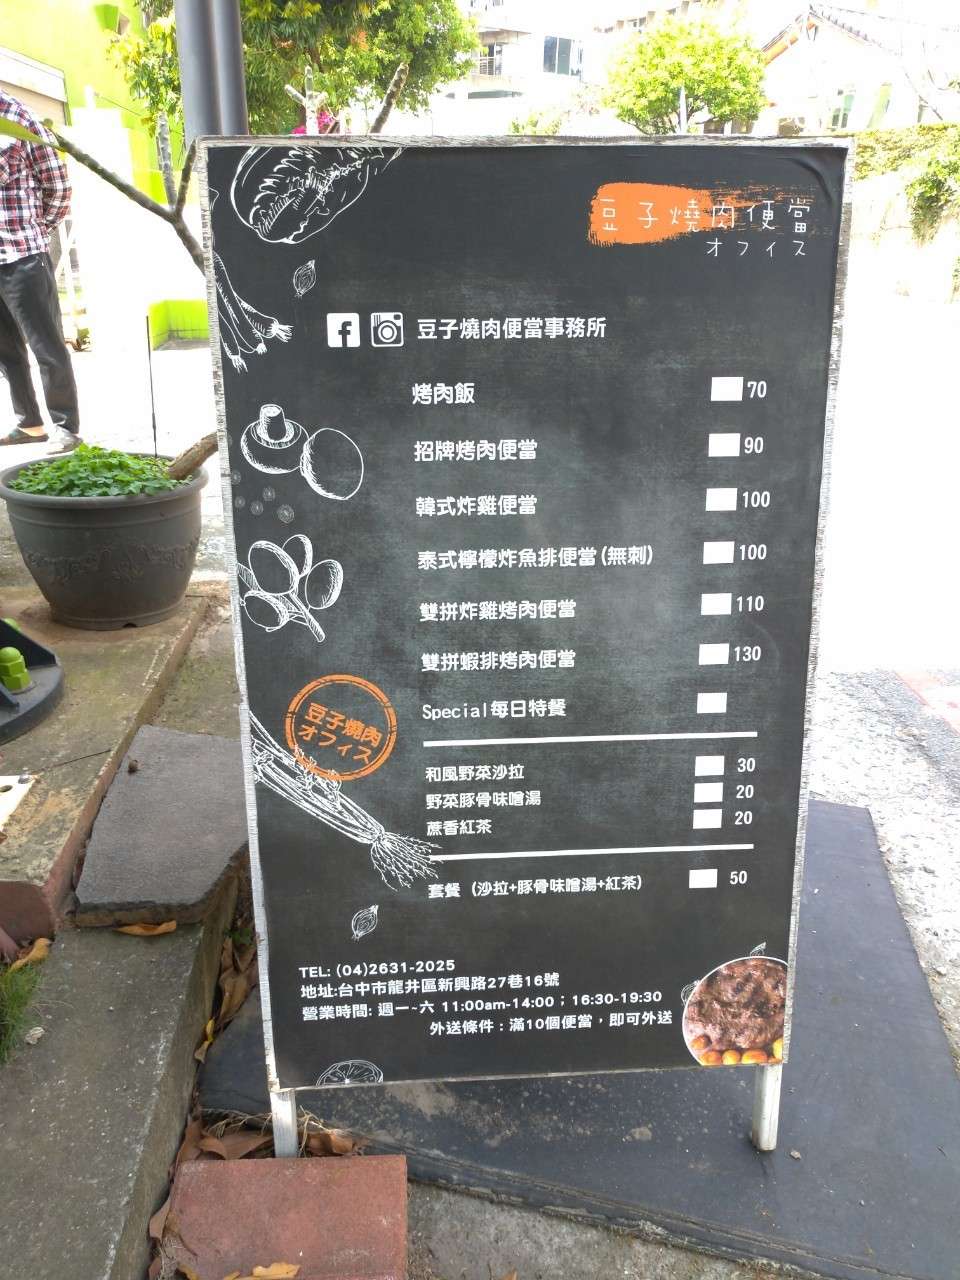 豆子燒肉便當
オフィス
豆子燒肉便當事務所
烤肉飯 70
招牌烤肉便當 90
韓式炸雞便當 100
泰式檸檬炸魚排便當(無刺) 100
雙拼炸雞烤肉便當 110
雙拼蝦排烤肉便當 130
Special每日特餐
豆子燒肉
オフィス
和風野菜沙拉 30
野菜豚骨味噌湯 20
蔗香紅茶 20
套餐 (沙拉+豚骨味噌湯+紅茶) 50
TEL: (04)2631-2025
地址:台中市龍井區新興路27巷16號
營業時間: 週一~六 11:00am-14:00；16:30-19:30
外送條件：滿10個便當，即可外送